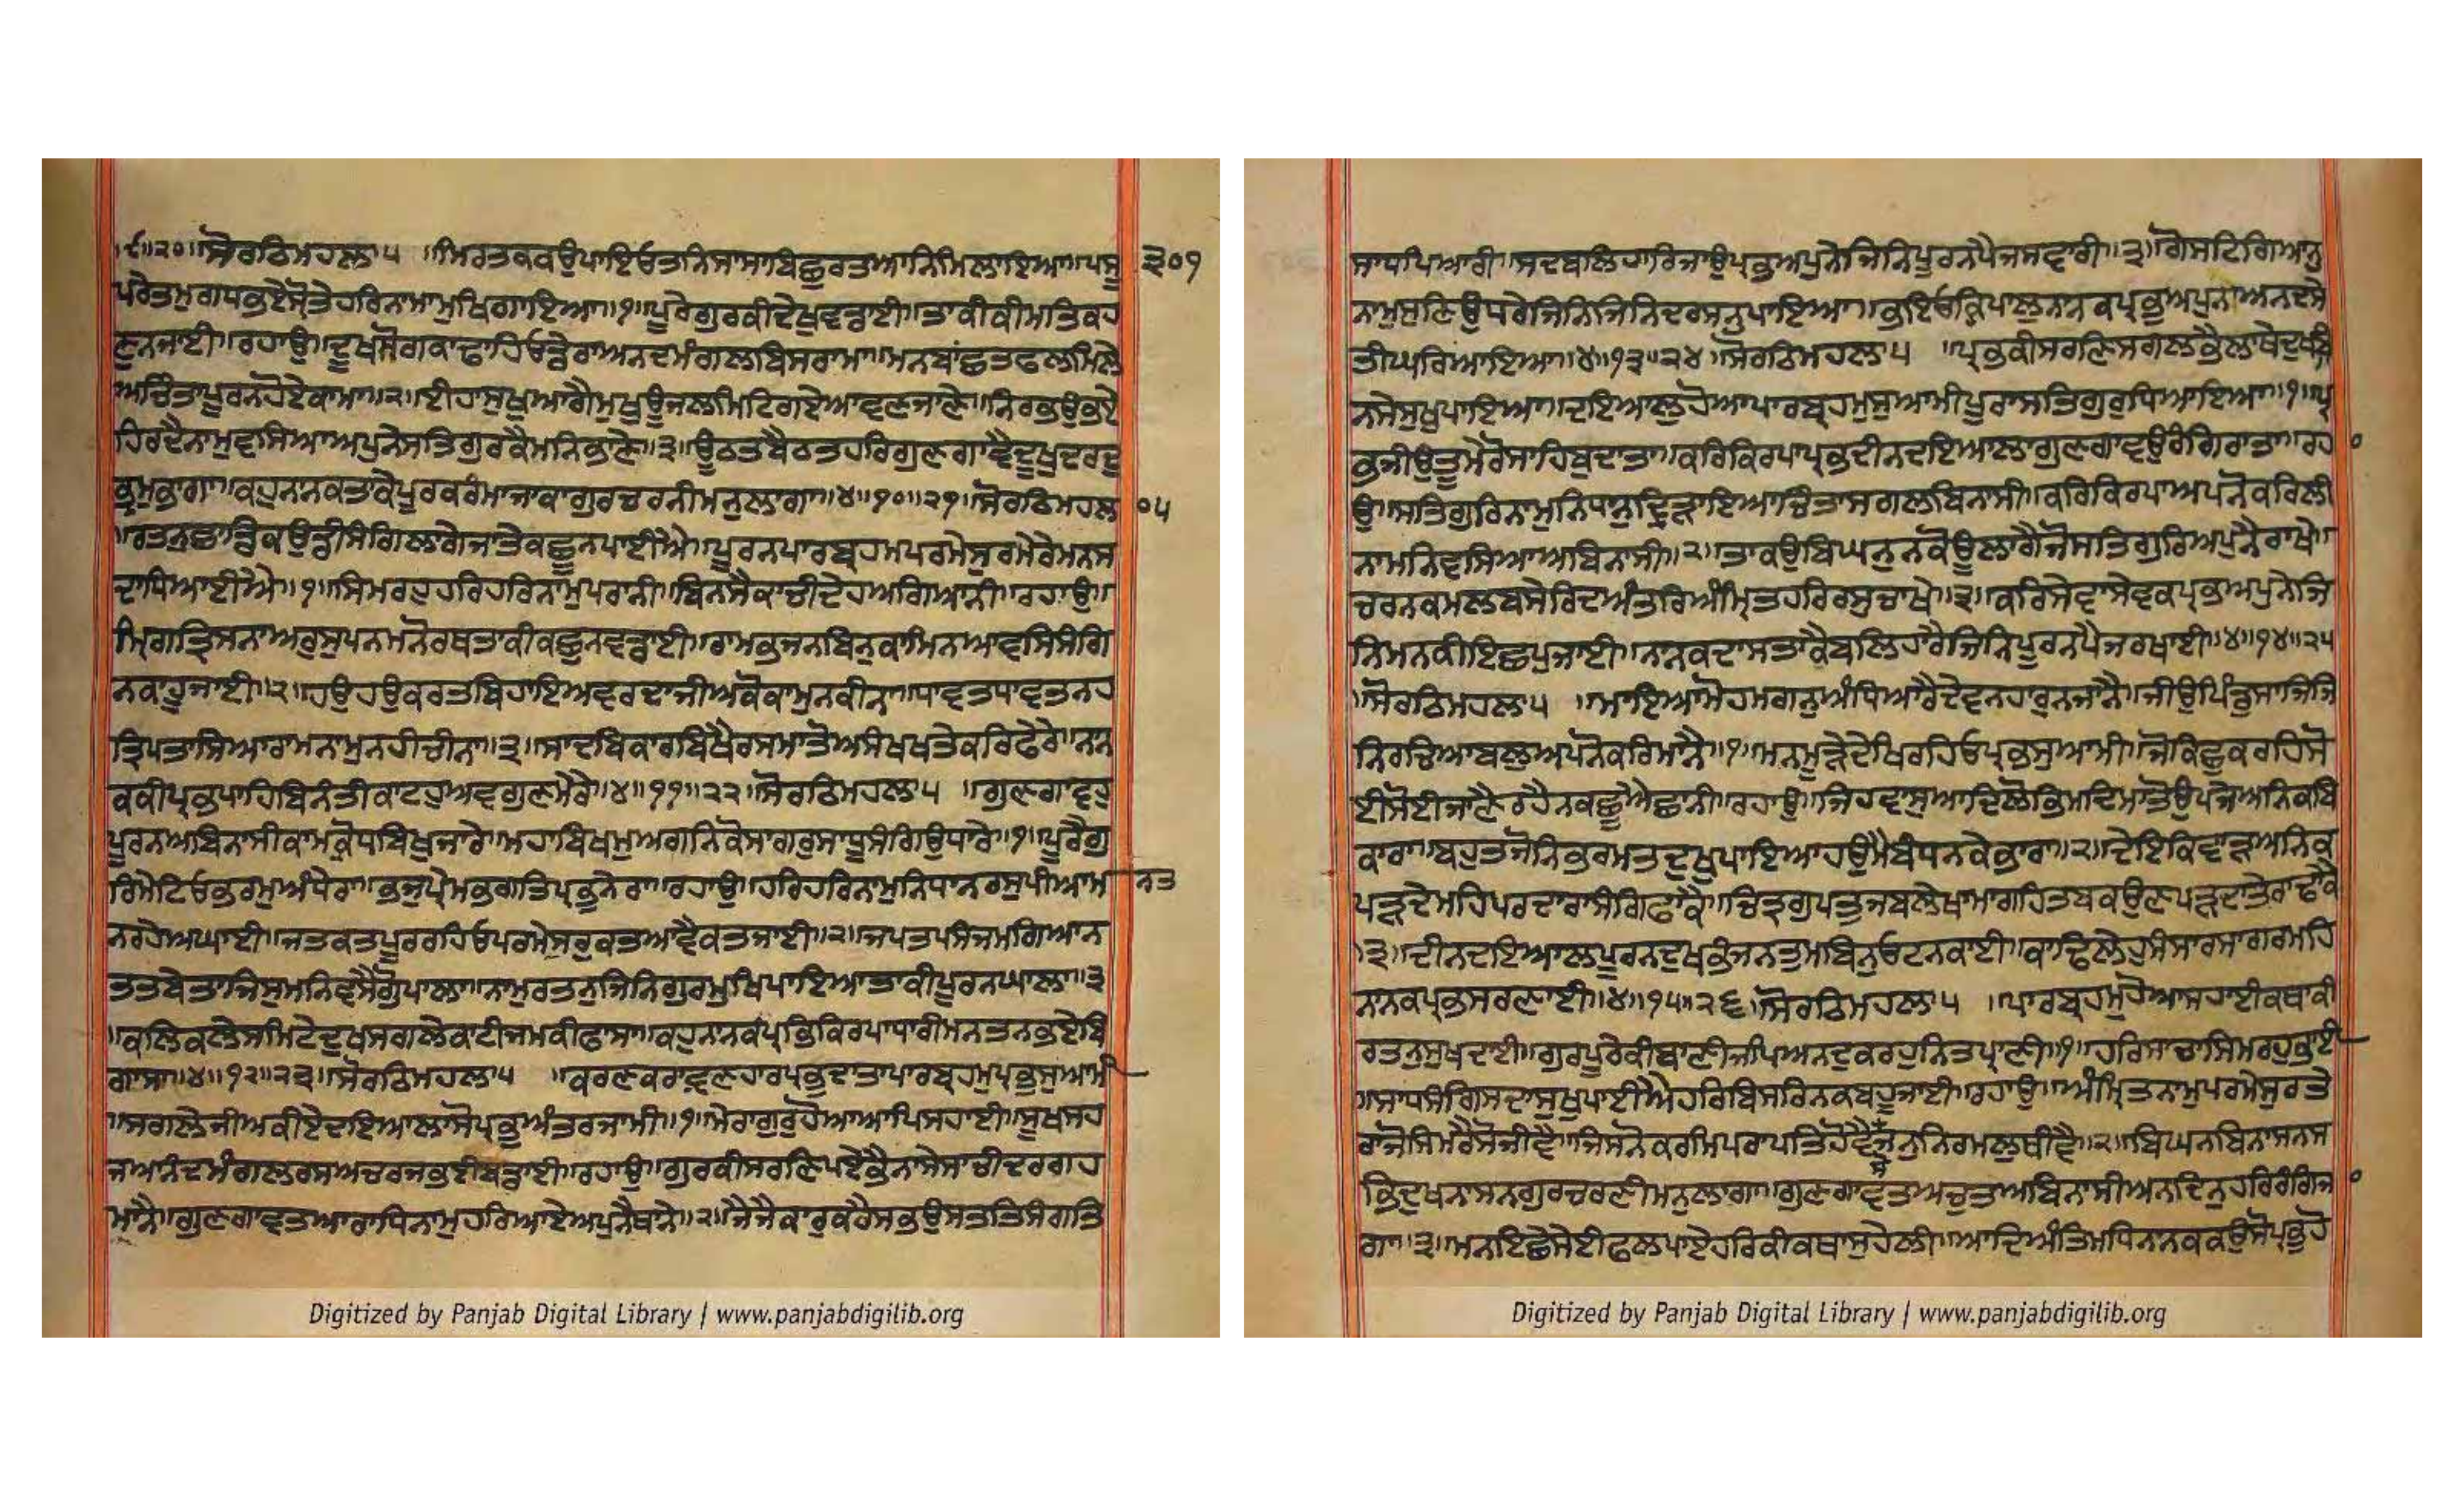 ।੯॥੨੦॥ਸੋਰਠਿਮਹਲਾ੫ ॥ਮਿਰਤਕਕਉਪਾਇਓਤਨਿਸਾਸਾਬਿਛੁਰਤਆਨਿਮਿਲਾਇਆ॥ਪਸੂ
੩੦੧
ਪਰੇਤਮੁਗਧਭਏਸ੍ਰੋਤੇਹਰਿਨਾਮਾਮੁਖਿਗਾਇਆ॥੧॥ਪੂਰੇਗੁਰਕੀਦੇਖੁਵਡਾਈ॥ਤਾਕੀਕੀਮਤਿਕਹ
ਣੁਨਜਾਈ॥ਰਹਾਉ॥ਦੂਖਸੋਗਕਾਢਾਹਿਓਡੇਰਾਅਨਦਮੰਗਲਬਿਸਰਾਮਾ॥ਮਨਬਾਂਛਤਫਲਮਿਲੇ
ਅਚਿੰਤਾਪੂਰਨਹੋਏਕਾਮਾ॥੨॥ਈਹਾਸੁਖੁਆਗੈਮੁਖਊਜਲਮਿਟਿਗਏਆਵਣਜਾਣੇ॥ਨਿਰਭਉਭਏ
ਹਿਰਦੈਨਾਮੁਵਸਿਆਅਪੁਨੇਸਤਿਗੁਰਕੈਮਨਿਭਾਣੇ॥੩॥ਊਠਤਬੈਠਤਹਰਿਗੁਣਗਾਵੈਦੂਖੁਦਰਦੁ
ਭ੍ਰਮੁਭਾਗਾ॥ਕਹੁਨਾਨਕਤਾਕੈਪੂਰਕਰੰਮਾਜਾਕਾਗੁਰਚਰਨੀਮਨੁਲਾਗਾ॥੪॥੧੦॥੨੧॥ਸੋਰਠਿਮਹਲ
੦੫
॥ਰਤਨੁਛਾਡਿਕਉਡੀਸੰਗਿਲਾਗੇਜਾਤੇਕਛੂਨਪਾਈਐ॥ਪੂਰਨਪਾਰਬ੍ਰਹਮਪਰਮੇਸੁਰਮੇਰੇਮਨਸ
ਦਾਧਿਆਈਐ॥੧॥ਸਿਮਰਹੁਹਰਿਹਰਿਨਾਮੁਪਰਾਨੀ॥ਬਿਨਸੈਕਾਚੀਦੇਹਅਗਿਆਨੀ॥ਰਹਾਉ॥
ਮ੍ਰਿਗਤ੍ਰਿਸਨਾਅਰੁਸੁਪਨਮਨੋਰਥਤਾਕੀਕਛੁਨਵਡਾਈ॥ਰਾਮਭਜਨਬਿਨੁਕਾਮਿਨਆਵਸਿਸੰਗਿ
ਨਕਾਹੂਜਾਈ॥੨॥ਹਉਹਉਕਰਤਬਿਹਾਇਅਵਰਦਾਜੀਅਕੋਕਾਮੁਨਕੀਨਾ॥ਧਾਵਤਧਾਵਤਨਹ
ਤ੍ਰਿਪਤਾਸਿਆਰਾਮਨਾਮੁਨਹੀਚੀਨਾ॥੩॥ਸਾਦਬਿਕਾਰਬਿਖੈਰਸਮਾਤੋਅਸੰਖਖਤੇਕਰਿਫੇਰੇ॥ਨਾਨ
ਕਕੀਪ੍ਰਭਪਾਹਿਬਿਨੰਤੀਕਾਟਹੁਅਵਗੁਣਮੇਰੇ॥੪॥੧੧॥੨੨॥ਸੋਰਠਿਮਹਲਾ੫ ॥ਗੁਣਗਾਵਹੁ
ਪੂਰਨਅਬਿਨਾਸੀਕਾਮਕ੍ਰੋਧਬਿਖੁਜਾਰੇ॥ਮਹਾਬਿਖਮੁਅਗਨਿਕੋਸਾਗਰੁਸਾਧੂਸੰਗਿਉਧਾਰੇ॥੧॥ਪੂਰੈਗੁ
ਰਿਮੇਟਿਓਭਰਮੁਅੰਧੇਰਾ॥ਭਜੁਪ੍ਰੇਮਭਗਤਿਪ੍ਰਭੁਨੇਰਾ॥ਰਹਾਉ॥ਹਰਿਹਰਿਨਾਮੁਨਿਧਾਨਰਸੁਪੀਆਮ
ਨਤ
ਨਰਹੇਅਘਾਈ॥ਜਤਕਤਪੂਰਰਹਿਓਪਰਮੇਸਰੁਕਤਆਵੈਕਤਜਾਈ॥੨॥ਜਪਤਪਸੰਜਮਗਿਆਨ
ਤਤਬੇਤਾਜਿਸੁਮਨਿਵਸੈਗੋੁਪਾਲਾ॥ਨਾਮੁਰਤਨੁਜਿਨਿਗੁਰਮੁਖਿਪਾਇਆਤਾਕੀਪੂਰਨਘਾਲਾ॥੩
॥ਕਲਿਕਲੇਸਮਿਟੇਦੁਖਸਗਲੇਕਾਟੀਜਮਕੀਫਾਸਾ॥ਕਹੁਨਾਨਕਪ੍ਰਭਿਕਿਰਪਾਧਾਰੀਮਨਤਨਭਏਬਿ
ਗਾਸਾ॥੪॥੧੨॥੨੩॥ਸੋਰਠਿਮਹਲਾ੫ ॥ਕਰਣਕਰਾਵਣਹਾਰਪ੍ਰਭੁਦਾਤਾਪਾਰਬ੍ਰਹਮੁਪ੍ਰਭੁਸੁਆਮੀ
॥ਸਗਲੇਜੀਅਕੀਏਦਇਆਲਾਸੋਪ੍ਰਭੁਅੰਤਰਜਾਮੀ॥੧॥ਮੇਰਾਗੁਰੁਹੋਆਆਪਿਸਹਾਈ॥ਸੂਖਸਹ
ਜਅਨੰਦਮੰਗਲਰਸਅਚਰਜਭਈਬਡਾਈ॥ਰਹਾਉ॥ਗੁਰਕੀਸਰਣਿਪਏਭੈਨਾਸੇਸਾਚੀਦਰਗਹ
ਮਾਨੇ॥ਗੁਣਗਾਵਤਆਰਾਧਿਨਾਮੁਹਰਿਆਏਅਪੁਨੈਥਾਨੇ॥੨॥ਜੈਜੈਕਾਰੁਕਰੈਸਭਉਸਤਤਿਸੰਗਤਿ
ਸਾਧਪਿਆਰੀ॥ਸਦਬਲਿਹਾਰਿਜਾਉਪ੍ਰਭਅਪੁਨੇਜਿਨਿਪੂਰਨਪੈਜਸਵਾਰੀ॥੩॥ਗੋਸਟਿਗਿਆਨੁ
ਨਾਮੁਸੁਣਿਉਧਰੇਜਿਨਿਜਿਨਿਦਰਸਨੁਪਾਇਆ॥ਭਇਓਕ੍ਰਿਪਾਲੁਨਾਨਕਪ੍ਰਭੁਅਪੁਨਾਅਨਦਸੇ
ਤੀਘਰਿਆਇਆ॥੪॥੧੩॥੨੪॥ਸੋਰਠਿਮਹਲਾ੫ ॥ਪ੍ਰਭਕੀਸਰਣਿਸਗਲਭੈਲਾਥੇਦੁਖਬਿ
ਨਸੇਸੁਖੁਪਾਇਆ॥ਦਇਆਲੁਹੋਆਪਾਰਬ੍ਰਹਮੁਸੁਆਮੀਪੂਰਾਸਤਿਗੁਰੁਧਿਆਇਆ॥੧॥ਪ੍ਰ
ਭਜੀਉਤੂਮੇਰੋਸਾਹਿਬੁਦਾਤਾ॥ਕਰਿਕਿਰਪਾਪ੍ਰਭਦੀਨਦਇਆਲਾਗੁਣਗਾਵਉਰੰਗਿਰਾਤਾ॥ਰਹ ੦
ਉ॥ਸਤਿਗੁਰਿਨਾਮੁਨਿਧਾਨੁਦ੍ਰਿੜਾਇਆਚਿੰਤਾਸਗਲਬਿਨਾਸੀ॥ਕਰਿਕਿਰਪਾਅਪਨੋਕਰਿਲੀ
ਨਾਮਨਿਵਸਿਆਅਬਿਨਾਸੀ॥੨॥ਤਾਕਉਬਿਘਨੁਨਕੋਊਲਾਗੈਜੋਸਤਿਗੁਰਿਅਪੁਨੈਰਾਖੇ॥
ਚਰਨਕਮਲਬਸੇਰਿਦਅੰਤਰਿਅੰਮ੍ਰਿਤਹਰਿਰਸੁਚਾਖੇ॥੩॥ਕਰਿਸੇਵਾਸੇਵਕਪ੍ਰਭਅਪੁਨੇਜਿ
ਨਿਮਨਕੀਇਛਪੁਜਾਈ॥ਨਾਨਕਦਾਸਤਾਕੈਬਲਿਹਾਰੈਜਿਨਿਪੂਰਨਪੈਜਰਖਾਈ॥੪॥੧੪॥੨੫
॥ਸੋਰਠਿਮਹਲਾ੫ ॥ਮਾਇਆਮੋਹਮਗਨੁਅੰਧਿਆਰੈਦੇਵਨਹਾਰੁਨਜਾਨੈ॥ਜੀਉਪਿੰਡੁਸਾਜਿਜਿ
ਨਿਰਚਿਆਬਲੁਅਪਨੋਕਰਿਮਾਨੈ॥੧॥ਮਨਮੂੜੇਦੇਖਿਰਹਿਓਪ੍ਰਭਸੁਆਮੀ॥ਜੋਕਿਛੁਕਰਹਿਸੋ
ਈਸੋਈਜਾਣੈਰਹੈਨਕਛੂਐਛਾਨੀ॥ਰਹਾਉ॥ਜਿਹਵਾਸੁਆਦਿਲੋਭਿਮਦਿਮਾਤੋਉਪਜੇਅਨਿਕਬਿ
ਕਾਰਾ॥ਬਹੁਤਜੋਨਿਭਰਮਤਦੁਖੁਪਾਇਆਹਉਮੈਬੰਧਨਕੇਭਾਰਾ॥੨॥ਦੇਇਕਿਵਾੜਅਨਿਕ
ਪੜਦੇਮਹਿਪਰਦਾਰਾਸੰਗਿਫਾਕੈ॥ਚਿਤ੍ਰਗੁਪਤੁਜਬਲੇਖਾਮਾਗਹਿਤਬਕਉਣੁਪੜਦਾਤੇਰਾਢਾਕੈ
॥੩॥ਦੀਨਦਇਆਲਪੂਰਨਦੁਖਭੰਜਨਤੁਮਬਿਨੁਓਟਨਕਾਈ॥ਕਾਢਿਲੇਹੁਸੰਸਾਰਸਾਗਰਮਹਿ
ਨਾਨਕਪ੍ਰਭਸਰਣਾਈ॥੪॥੧੫॥੨੬॥ਸੋਰਠਿਮਹਲਾ੫ ॥ਪਾਰਬ੍ਰਹਮੁਹੋਆਸਹਾਈਕਥਾਕੀ
ਰਤਨੁਸੁਖਦਾਈ॥ਗੁਰਪੂਰੇਕੀਬਾਣੀਜਪਿਅਨਦੁਕਰਹੁਨਿਤਪ੍ਰਾਣੀ॥੧॥ਹਰਿਸਾਚਾਸਿਮਰਹੁਭਾਈ
॥ਸਾਧਸੰਗਿਸਦਾਸੁਖੁਪਾਈਐਹਰਿਬਿਸਰਿਨਕਬਹੂਜਾਈ॥ਰਹਾਉ॥ਅੰਮ੍ਰਿਤਨਾਮੁਪਰਮੇਸੁਰਤੇ
ਰਾਜੋਸਿਮਰੈਸੋਜੀਵੈ॥ਜਿਸਨੋਕਰਮਿਪਰਾਪਤਿਹੋਵੈਜਨੁਨਿਰਮਲੁਥੀਵੈ॥੨॥ਬਿਘਨਬਿਨਾਸਨਸ
ਸੋ
ਭਿਦੁਖਨਾਸਨਗੁਰਚਰਣੀਮਨੁਲਾਗਾ॥ਗੁਣਗਾਵਤਅਚੁਤਅਬਿਨਾਸੀਅਨਦਿਨੁਹਰਿਰੰਗਿਜ ੦
ਗਾ॥੩॥ਮਨਇਛੇਸੇਈਫਲਪਾਏਹਰਿਕੀਕਥਾਸੁਹੇਲੀ॥ਆਦਿਅੰਤਿਮਧਿਨਾਨਕਕਉਸੋਪ੍ਰਭੁਹੋ
Digitized by Panjab Digital Library | www.panjabdigilib.org
Digitized by Panjab Digital Library | www.panjabdigilib.org